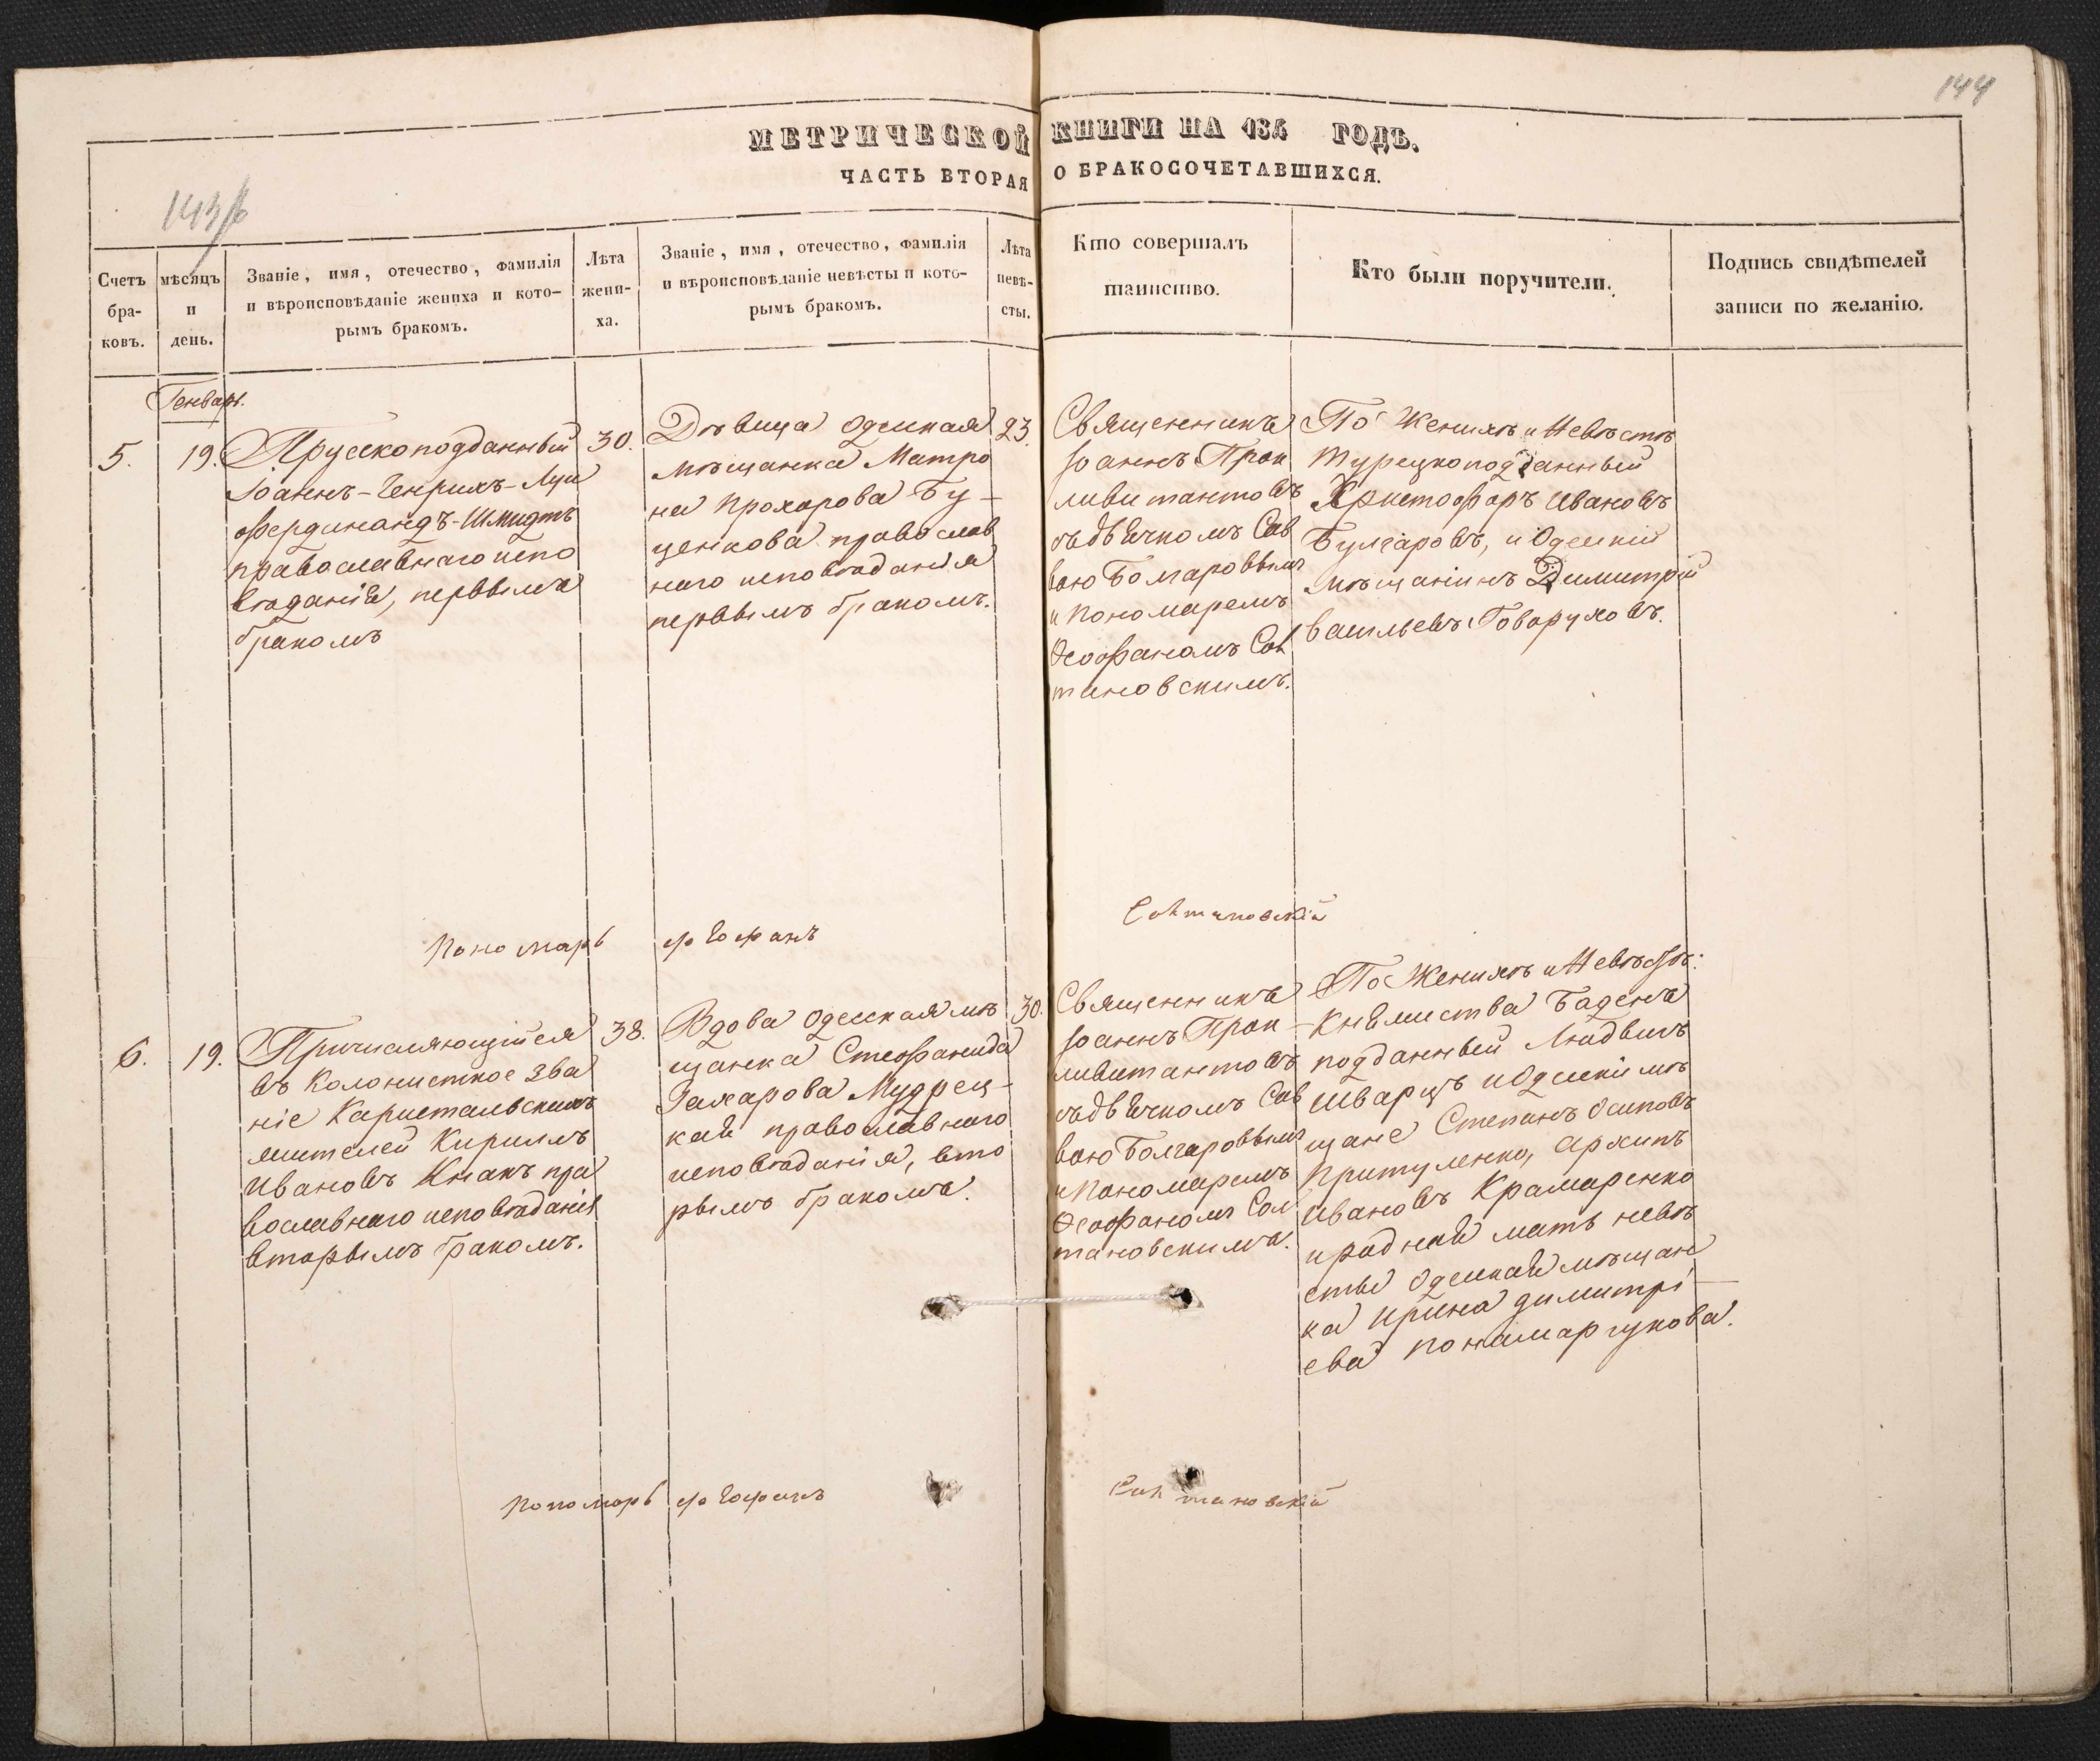 144
МЕТРИЧЕСКОЙ КНИГИ НА 184 ГОДЪ.
ЧАСТЬ ВТОРАЯ О БРАКОСОЧЕТАВШИХСЯ.
143
Счетъ бра-ковъ.
мѣсяцъ и день.
Званіе, имя, отечество, фамилія
и вѣроисповѣданіе жениха и кото-
рымъ бракомъ.
Лѣта
жени-
ха.
Званіе, имя, отечество, фамилія
и вѣроисповѣданіе невѣсты и кото-
рымъ бракомъ.
Лѣта
невѣ-
сты.
Кто совершалъ
таинство.
Кто были поручители.
Подпись свидѣтелей
записи по желанію.
Генварь.
5.
19.
Прусскоподданный
Іоаннъ-Генрихъ-Луи
Фердинандъ-Шмидтъ
православнаго испо
вѣданія, первымъ
бракомъ
30.
Дѣвица Одесская
мѣщанка Матро
на Прохорова Бу-
ценкова православ
наго исповѣданія
первымъ бракомъ.
23.
Священникъ
Іоаннъ
съ дьячкомъ Сав
вою Болгаровымъ
и Пономаремъ
Ѳеофаномъ Сал
тановскимъ.
По Женихѣ и Невѣстѣ
Турецкоподданный
Христофоръ Ивановъ
Булгаровъ, и Одесскій
мѣщанинъ Димитрій
Васильевъ Говоруховъ.
Пономарь Феофанъ Салтановскій
6.
19.
Причисляющійся
въ Колонисткое зва
ніе Каристальскихъ
жителей Кириллъ
Ивановъ Кнакъ пра
вославнаго исповѣданія
вторымъ бракомъ.
38.
Вдова Одесская мѣ
щанка Стефанида
Захарова Мудрец-
кая православнаго
исповѣданія, вто
рымъ бракомъ.
30.
Священникъ
Іоаннъ
съ дьячкомъ Сав
вою Болгаровымъ
и Пономаремъ
Ѳеофаномъ Сал
тановскимъ.
По Женихѣ и Невѣстѣ:
Княжества Баденъ
подданный Людвигъ
Шварцъ и Одесскіи мѣ
щане Степанъ Осиповъ
Притуленко, Архипъ
Ивановъ Крамаренко
и родная мать невѣ
сты Одесская мѣщан
ка Ирина Димитрі-
ева Понамарчукова.
Пономарь Феофанъ Салтановскій